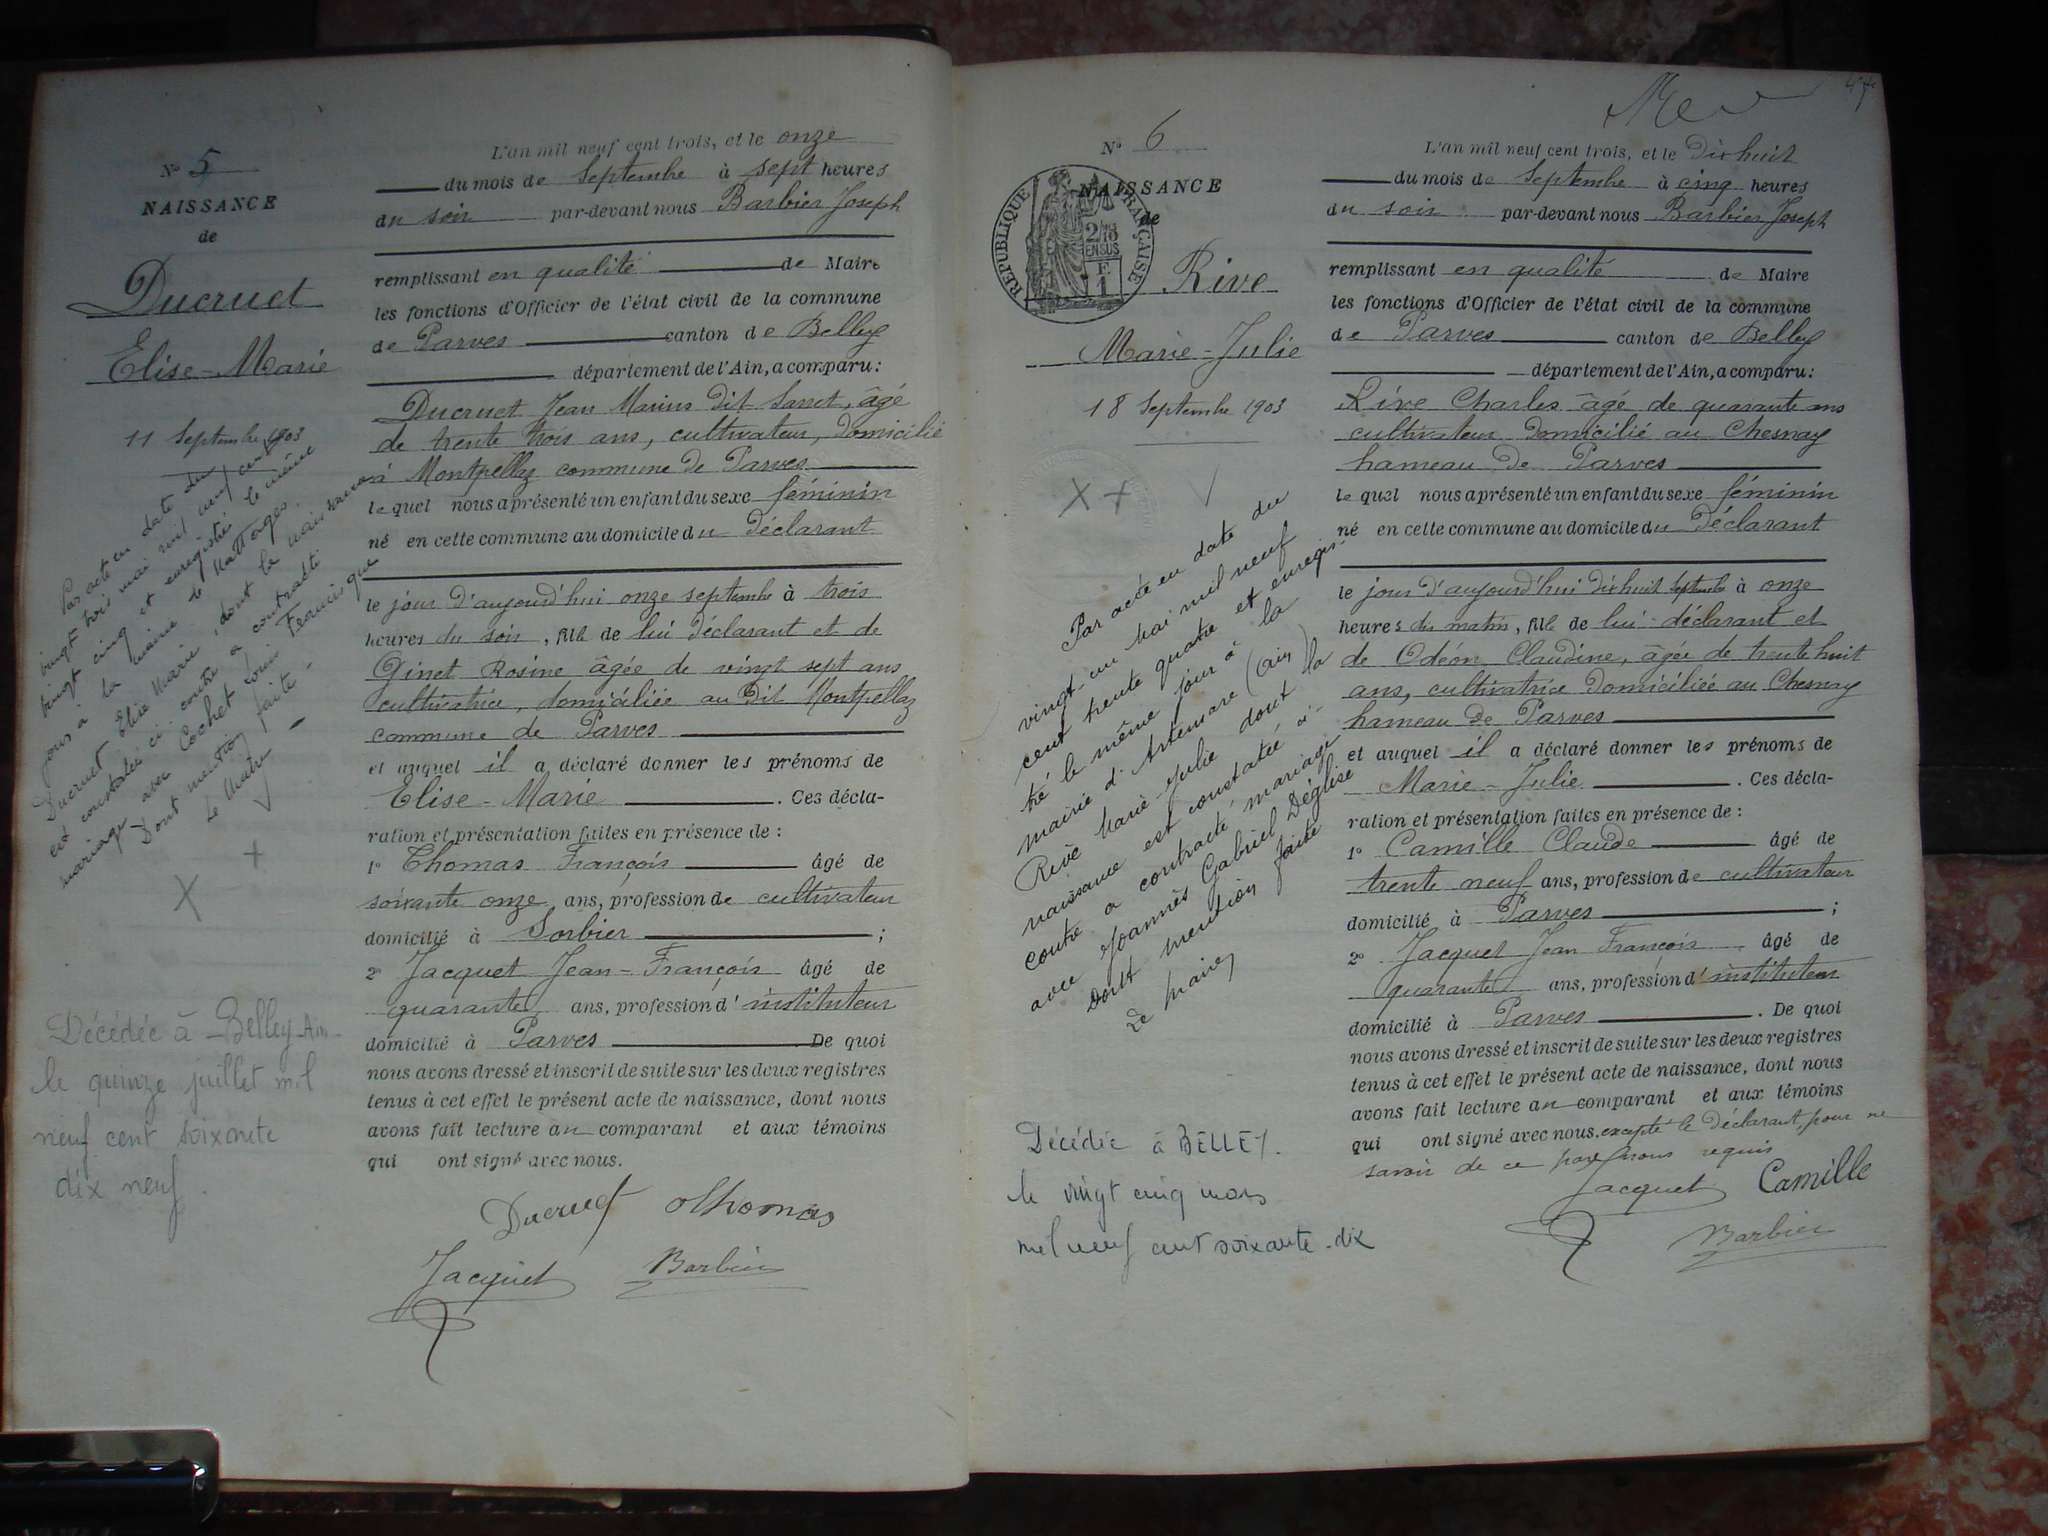 Nº 5
NAISSANCE
de
Ducruet
Elise-Marie
11 Septembre 1903
Par acte en date du
vingt trois mai mil neuf cent
vingt cinq et enregistré le même
jour à la mairie de
Ducruet Elise Marie, dont la naissance
est constatée ci-contre a contracté
mariage avec Cochet Louis Francisque
Dont mention faite.
Le Maire
Décédée à Belley-Ain
le quinze juillet mil
neuf cent soixante
dix neuf.
L'an mil neuf cent trois, et le onze
du mois de Septembre à sept heures
du soir par-devant nous Barbier Joseph
remplissant en qualité de Maire
les fonctions d'Officier de l'état civil de la commune
de Parves canton de Belley
département de l'Ain, a comparu:
Ducruet Jean Marius dit, âgé
de trente trois ans, cultivateur, domicilié
à Montpellaz commune de Parves
lequel nous a présenté un enfant du sexe féminin
né en cette commune au domicile du Déclarant
le jour d'aujourd'hui onze septembre à trois
heures du soir, fille de lui déclarant et de
Ginet Rosine âgée de vingt sept ans
cultivatrice, domiciliée au dit Montpellaz
commune de Parves
et auquel il a déclaré donner les prénoms de
Elise-Marie. Ces décla-
ration et présentation faites en présence de:
1º Thomas François âgé de
soixante onze ans, profession de cultivateur
domicilié à Sorbier;
2º Jacquet Jean-François âgé de
quarante ans, profession d'instituteur
domicilié à Parves. De quoi
nous avons dressé et inscrit de suite sur les deux registres
tenus à cet effet le présent acte de naissance, dont nous
avons fait lecture au comparant et aux témoins
qui ont signé avec nous.
Ducruet Thomas
Jacquet Barbier
Nº 6
NAISSANCE
de
RÉPUBLIQUE FRANÇAISE
Rive
Marie-Julie
18 Septembre 1903
Par acte en date du
vingt-un mai mil neuf
cent trente quatre et enregis-
tré le même jour à la
mairie d'Artemare (Ain)
Rive Marie-Julie dont la
naissance est constatée ci-
contre a contracté mariage
avec Joannès Gabriel Déglise
Dont mention faite
Le Maire,
Décédée à BELLEY.
le vingt cinq mars
mil neuf cent soixante-dix
L'an mil neuf cent trois, et le Dix huit
du mois de Septembre à cinq heures
du soir par-devant nous Barbier Joseph
remplissant en qualité de Maire
les fonctions d'Officier de l'état civil de la commune
de Parves canton de Belley
département de l'Ain, a comparu:
Rive Charles âgé de quarante ans
cultivateur domicilié au Chesnay
hameau de Parves
lequel nous a présenté un enfant du sexe féminin
né en cette commune au domicile du Déclarant
le jour d'aujourd'hui dix huit Septembre à onze
heures du matin, fille de lui déclarant et
de Odéon Claudine, âgée de trente huit
ans, cultivatrice domiciliée au Chesnay
hameau de Parves
et auquel il a déclaré donner les prénoms de
Marie-Julie. Ces décla-
ration et présentation faites en présence de:
1º Camille Claude âgé de
trente neuf ans, profession de cultivateur
domicilié à Parves;
2º Jacquet Jean François âgé de
quarante ans, profession d'instituteur
domicilié à Parves. De quoi
nous avons dressé et inscrit de suite sur les deux registres
tenus à cet effet le présent acte de naissance, dont nous
avons fait lecture au comparant et aux témoins
qui ont signé avec nous, excepté le Déclarant pour ne
savoir de ce par nous requis
Jacquet Camille
Barbier